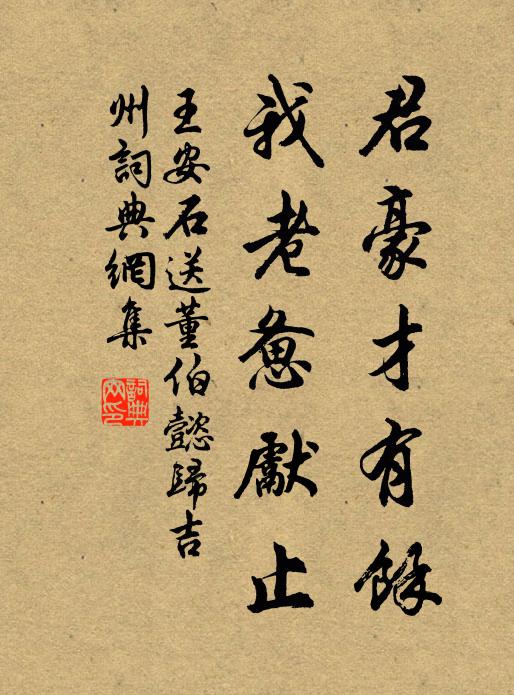 君豪才有餘
我老惫獻止
王安石送董伯懿歸吉
州詞典網集
詞典
网印